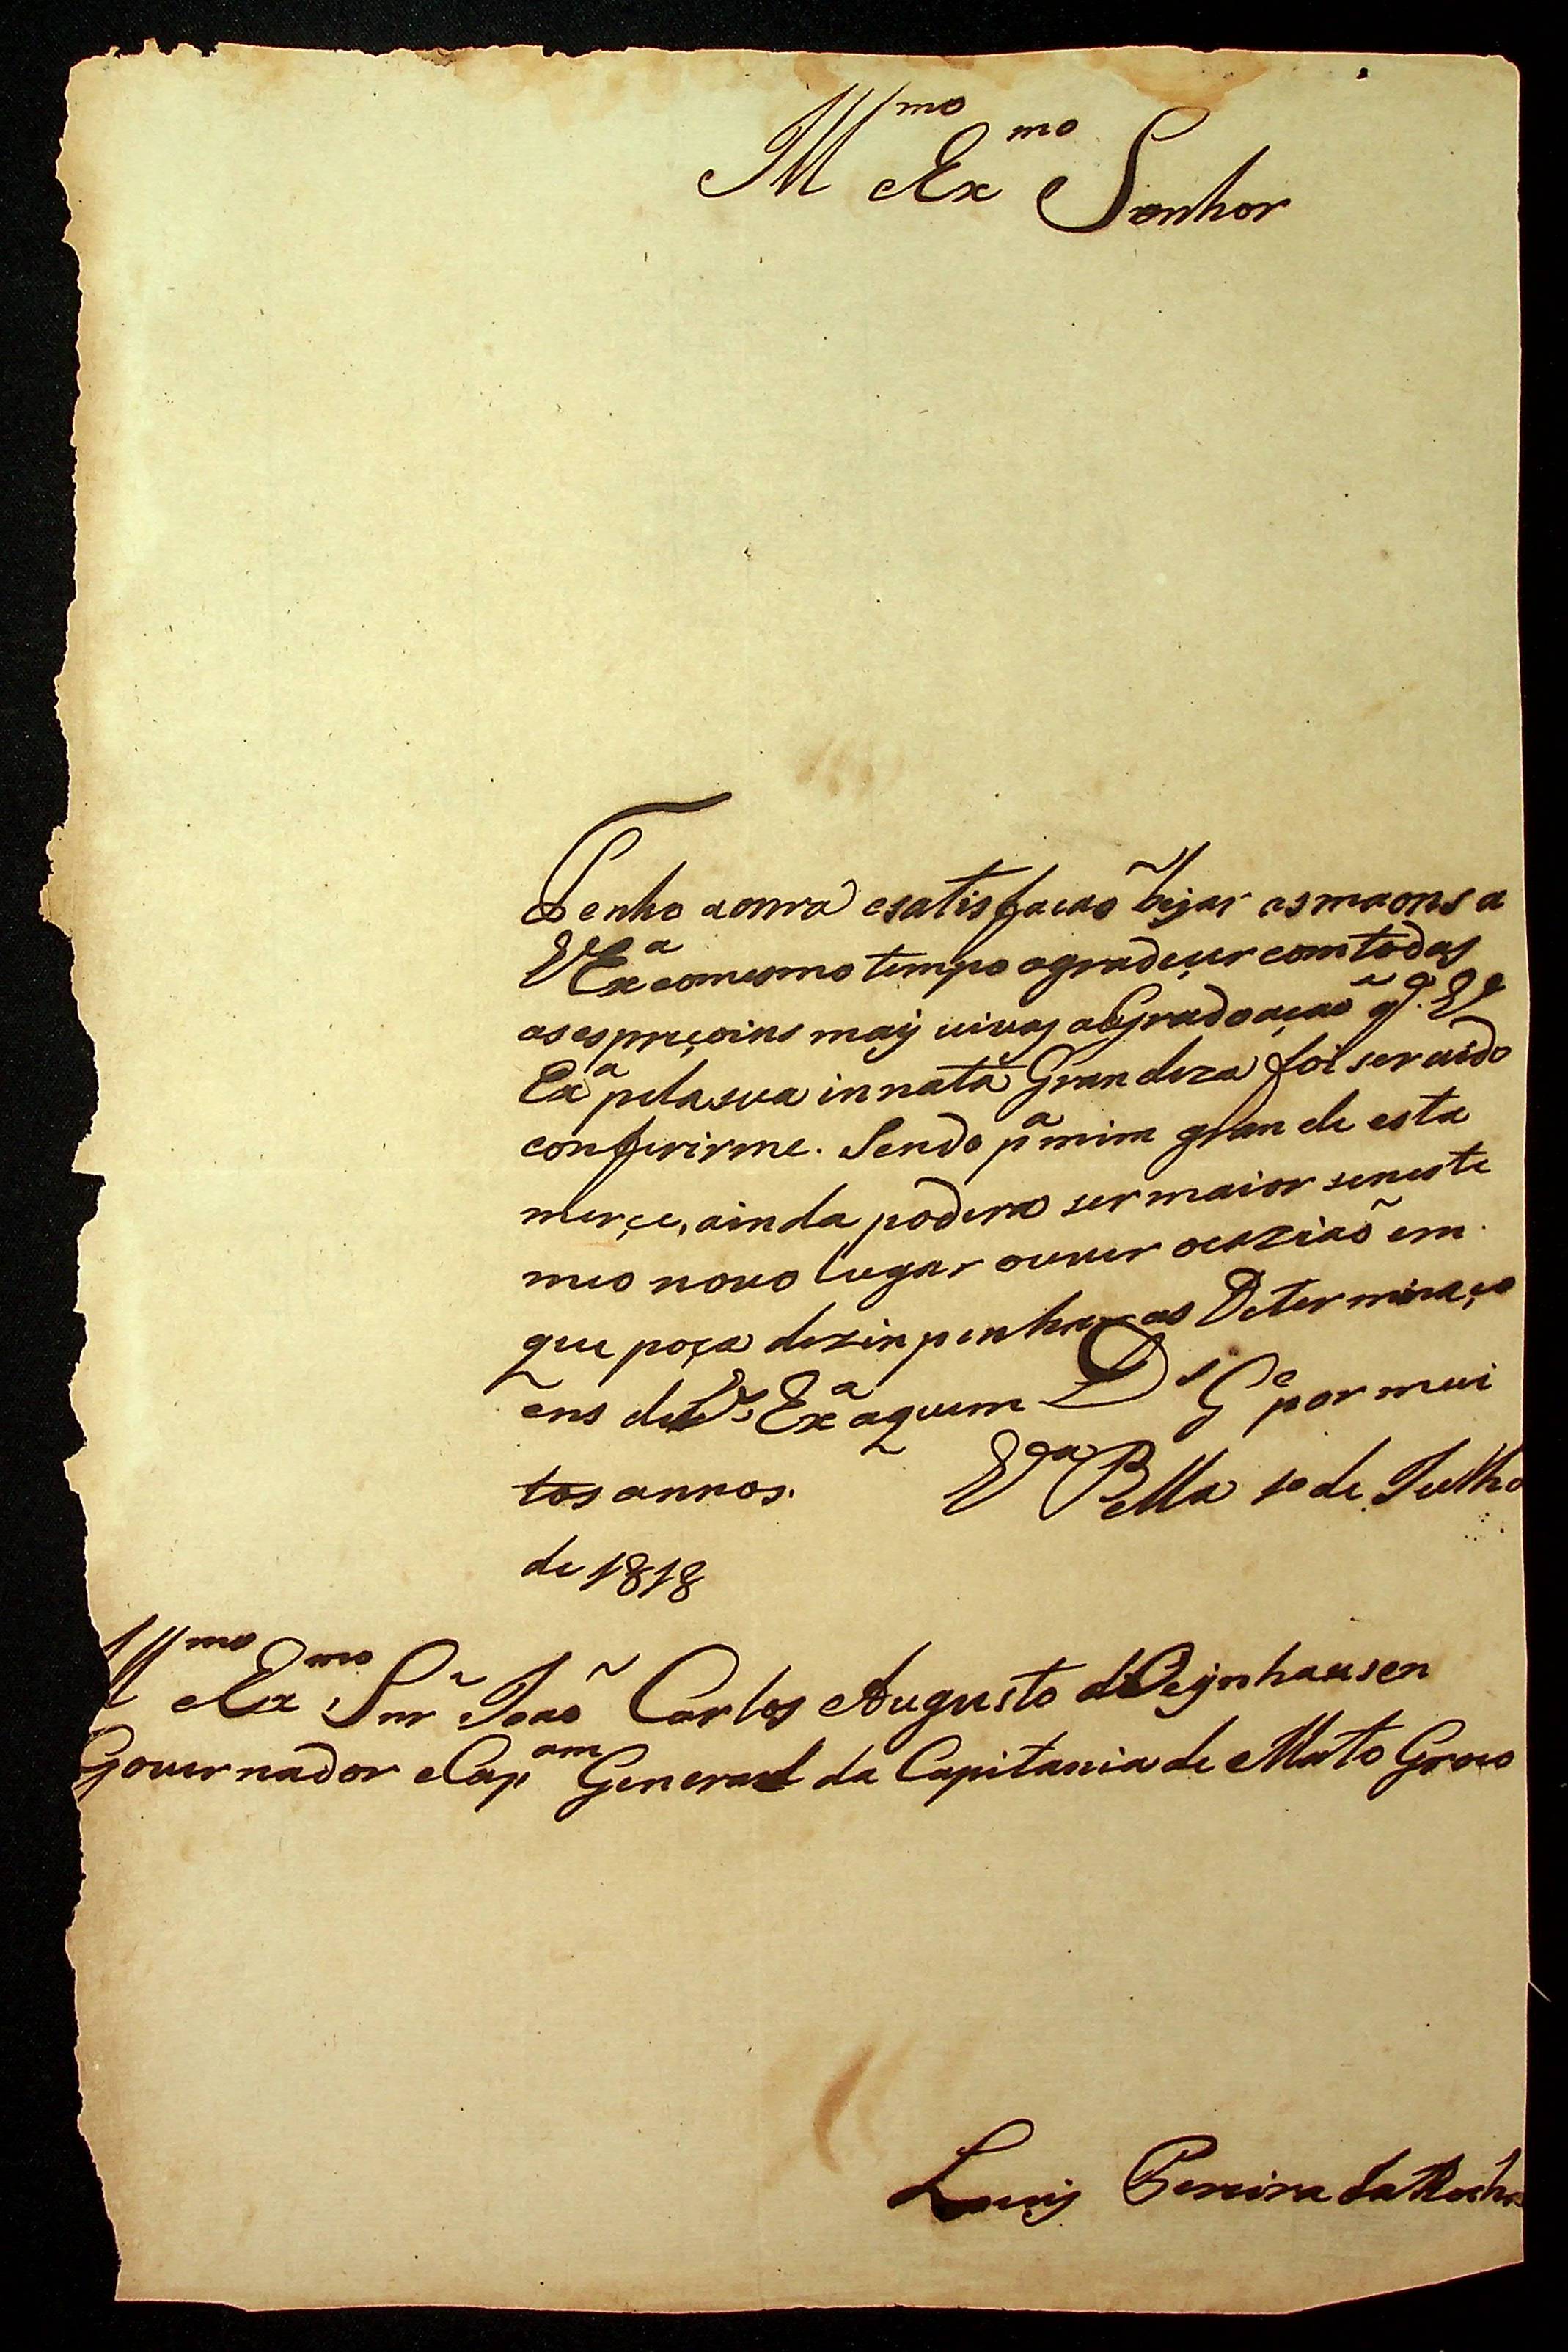 Ill.mo Ex.mo Senhor
Tenho aonra esatisfacaõ bejar asmaons a
V Ex.a eomesmo tempo agradeçer comtodas
asespreçoins maÿ vivas aGradoaçaõ q̃. V
Ex.a pelasua innata Grandeza foi servido
conferirme. Sendo p.a mim grande esta
merçe, ainda podera ser maior seneste
meo novo lugar ouver ocaziaõ em
que poça dezinpenhar as Determinaço
ens de V. Ex.a aquem D.s G.e por mui
tos annos. V.a Bella 10 de Julho
de 1818
Ill.mo Ex.mo Snr̃ Joaõ Carlos Augusto dOeÿnhausen
Governador eCap.am General da Capitania de Mato Groco
Luis Pereira da Rocha